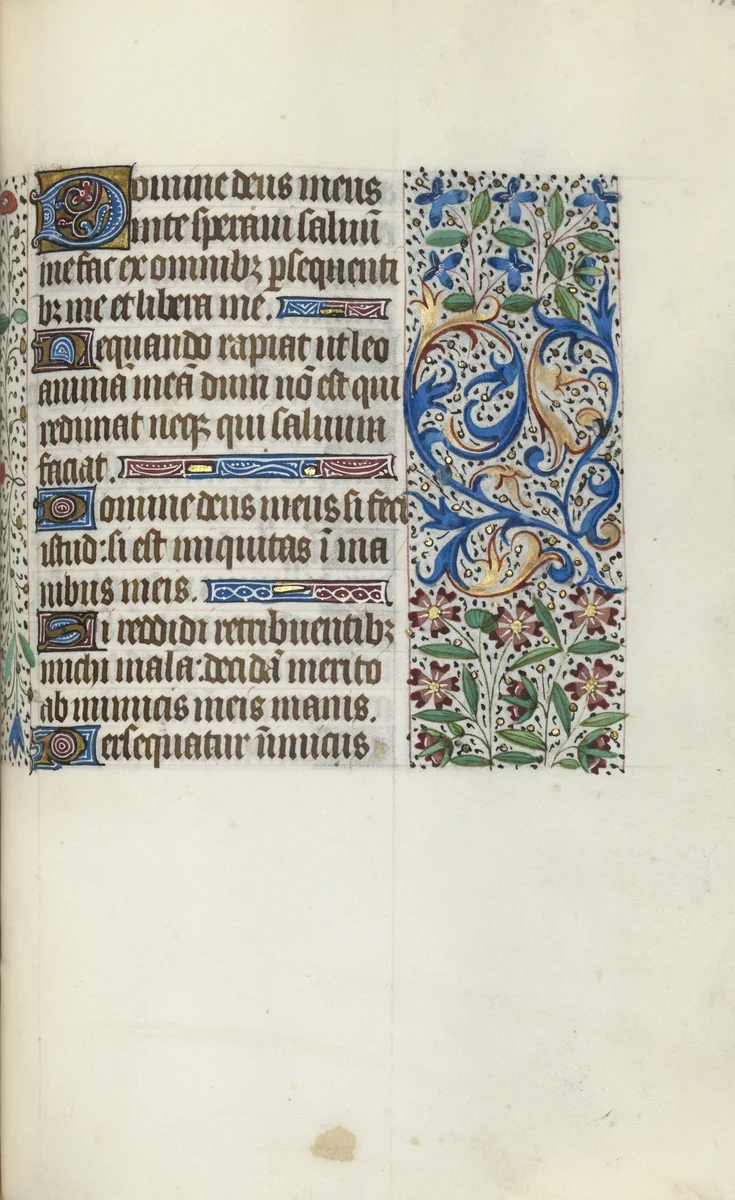 Domine deus meus
in te speraui saluũ
me fac ex omnibꝫ ꝑsequenti
bꝫ me et libera me.
Nequando rapiat ut leo
animã meã dum nõ est qui
redimat neqꝫ qui saluum
faciat.
Domine deus meus si feci
istud: si est iniquitas ĩ ma
nibus meis.
Si reddidi retribuentibꝫ
michi mala: decidã merito
ab inimicis meis inanis.
Persequatur inimicus